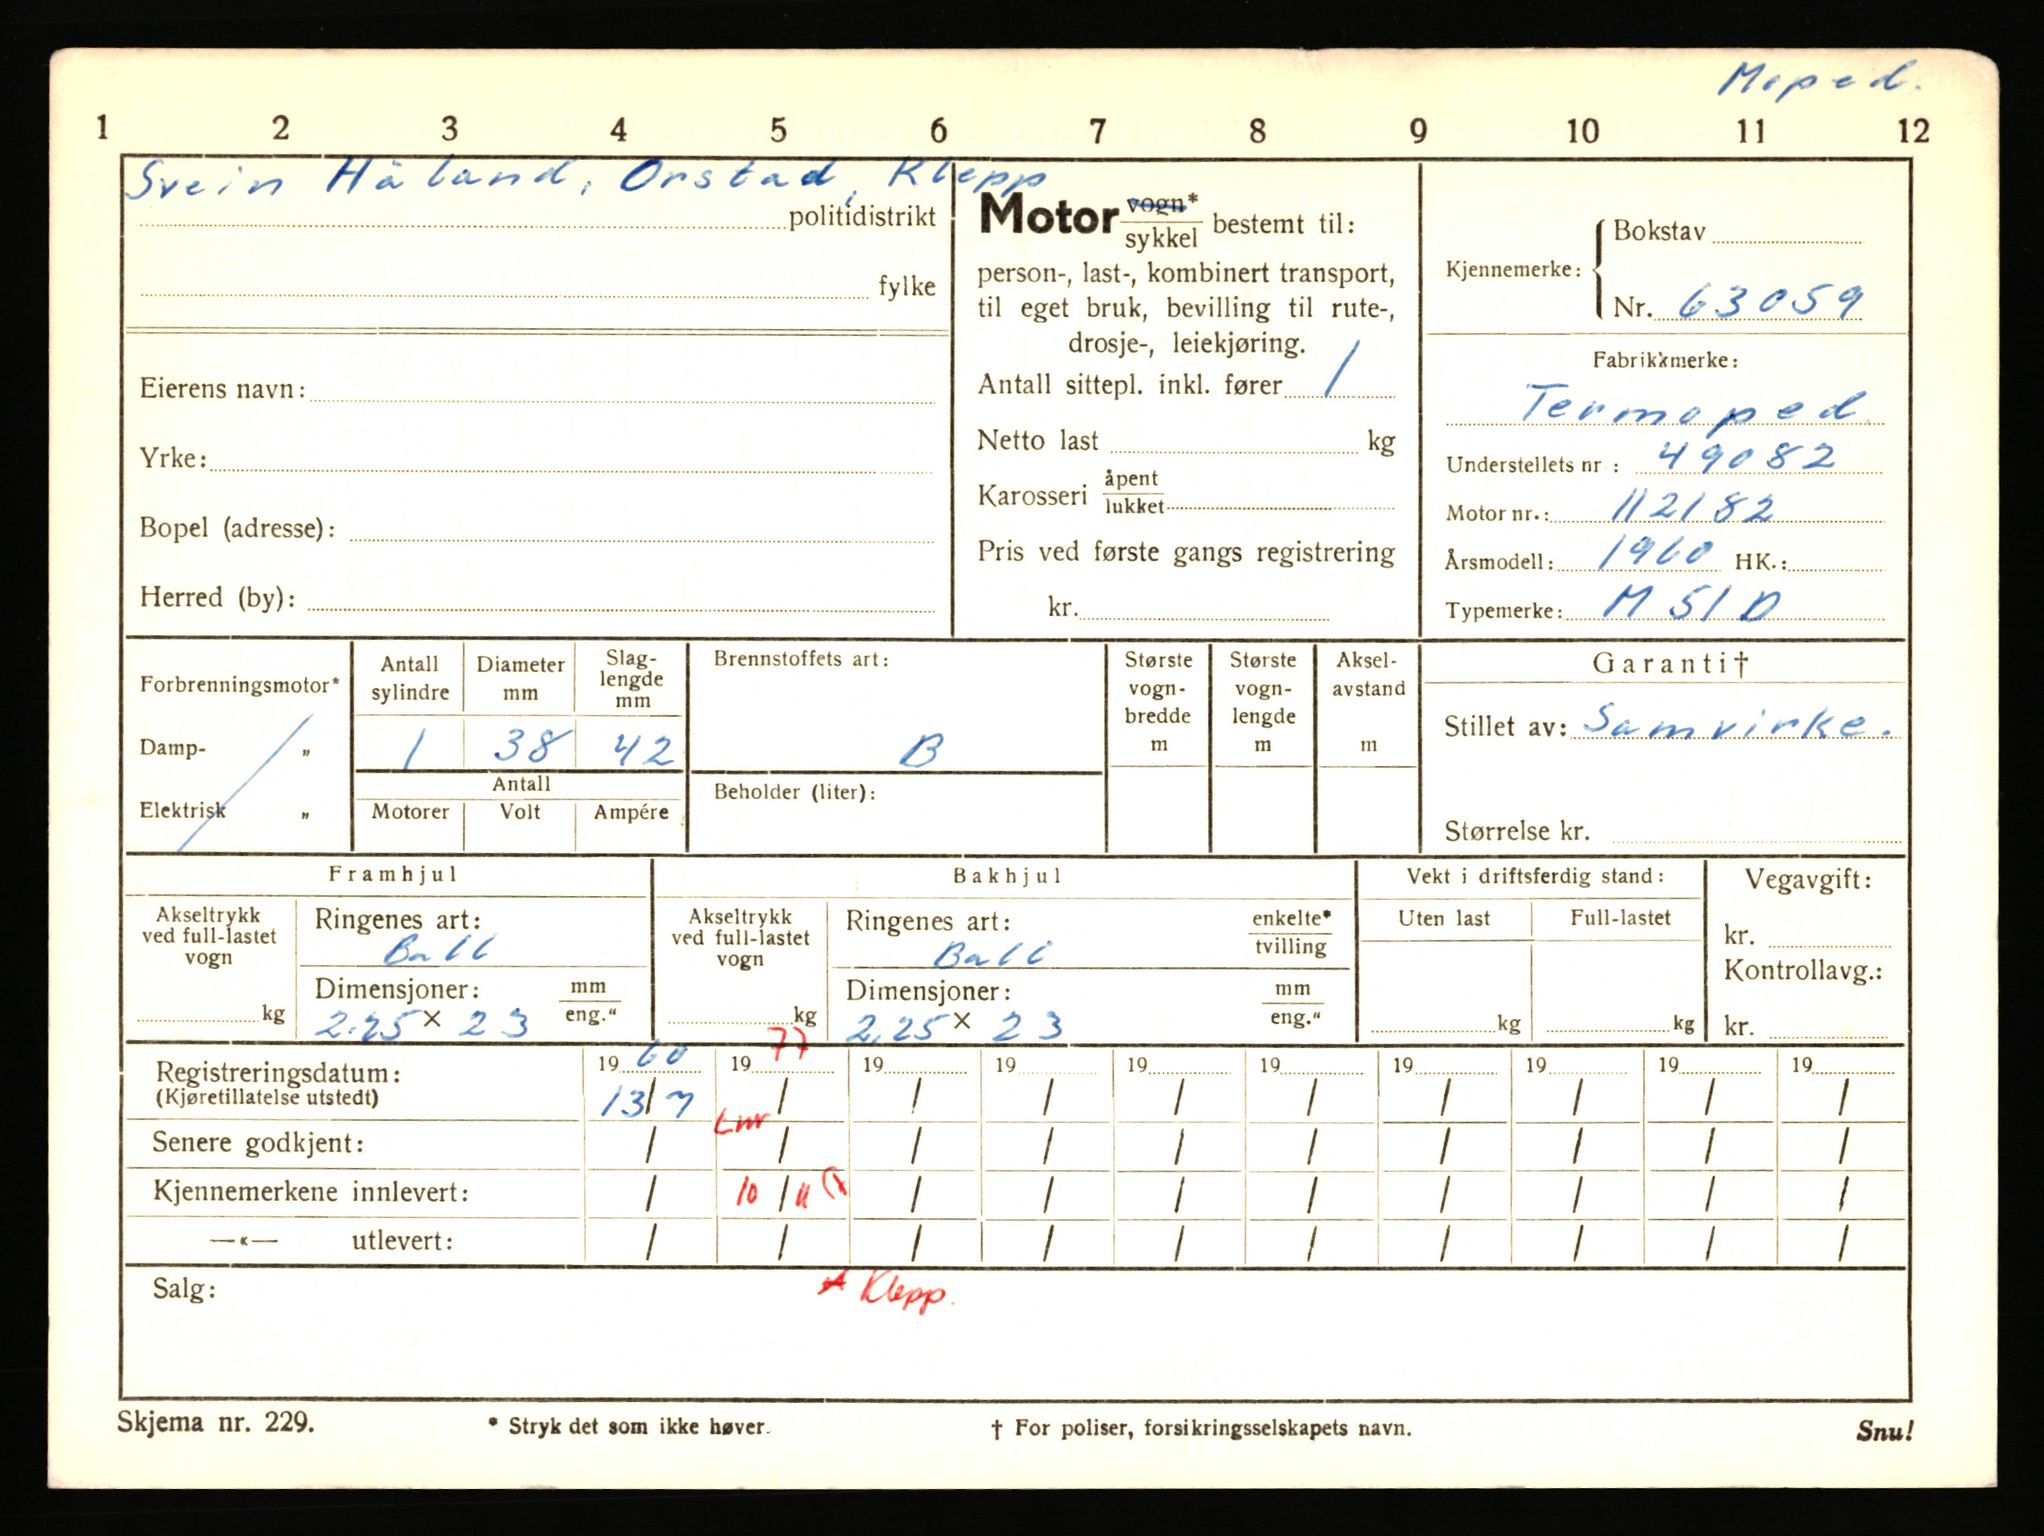 Moped.
1 2 3 4 5 6 7 8 9 10 11 12
Svein Håland, Orstad, Klepp
politidistrikt
fylke
Eierens navn:
Yrke:
Bopel (adresse):
Herred (by):
Motor vogn* / sykkel bestemt til:
person-, last-, kombinert transport,
til eget bruk, bevilling til rute-,
drosje-, leiekjøring.
Antall sittepl. inkl. fører 1
Netto last kg
Karosseri åpent / lukket
Pris ved første gangs registrering
kr.
Kjennemerke: Bokstav
Nr. 63059
Fabrikkmerke:
Termoped.
Understellets nr.: 49082
Motor nr.: 112182
Årsmodell: 1960 HK.:
Typemerke: M 51 D
Forbrenningsmotor*
Damp- „
Elektrisk „
Antall sylindre 1
Diameter mm 38
Slag-lengde mm 42
Antall
Motorer Volt Ampére
Brennstoffets art:
B
Beholder (liter):
Største vogn-bredde m
Største vogn-lengde m
Aksel-avstand m
Garanti†
Stillet av: Samvirke.
Størrelse kr.
Framhjul
Akseltrykk ved full-lastet vogn
kg
Ringenes art:
Ball
Dimensjoner: mm / eng.“
2.25 × 23
Bakhjul
Akseltrykk ved full-lastet vogn
kg
Ringenes art: enkelte* / tvilling
Ball
Dimensjoner: mm / eng.“
2.25 × 23
Vekt i driftsferdig stand:
Uten last Full-lastet
kg kg
Vegavgift:
kr.
Kontrollavg.:
kr.
Registreringsdatum: 19 60 19 77 19 19 19 19 19 19 19 19
(Kjøretillatelse utstedt) 13/7 / / / / / / / / /
Senere godkjent: / / / / / / / / / /
Kjennemerkene innlevert: / 10/11 / / / / / / / /
—«— utlevert: / / / / / / / / / /
Salg:
Klepp.
Skjema nr. 229.
* Stryk det som ikke høver.
† For poliser, forsikringsselskapets navn.
Snu!